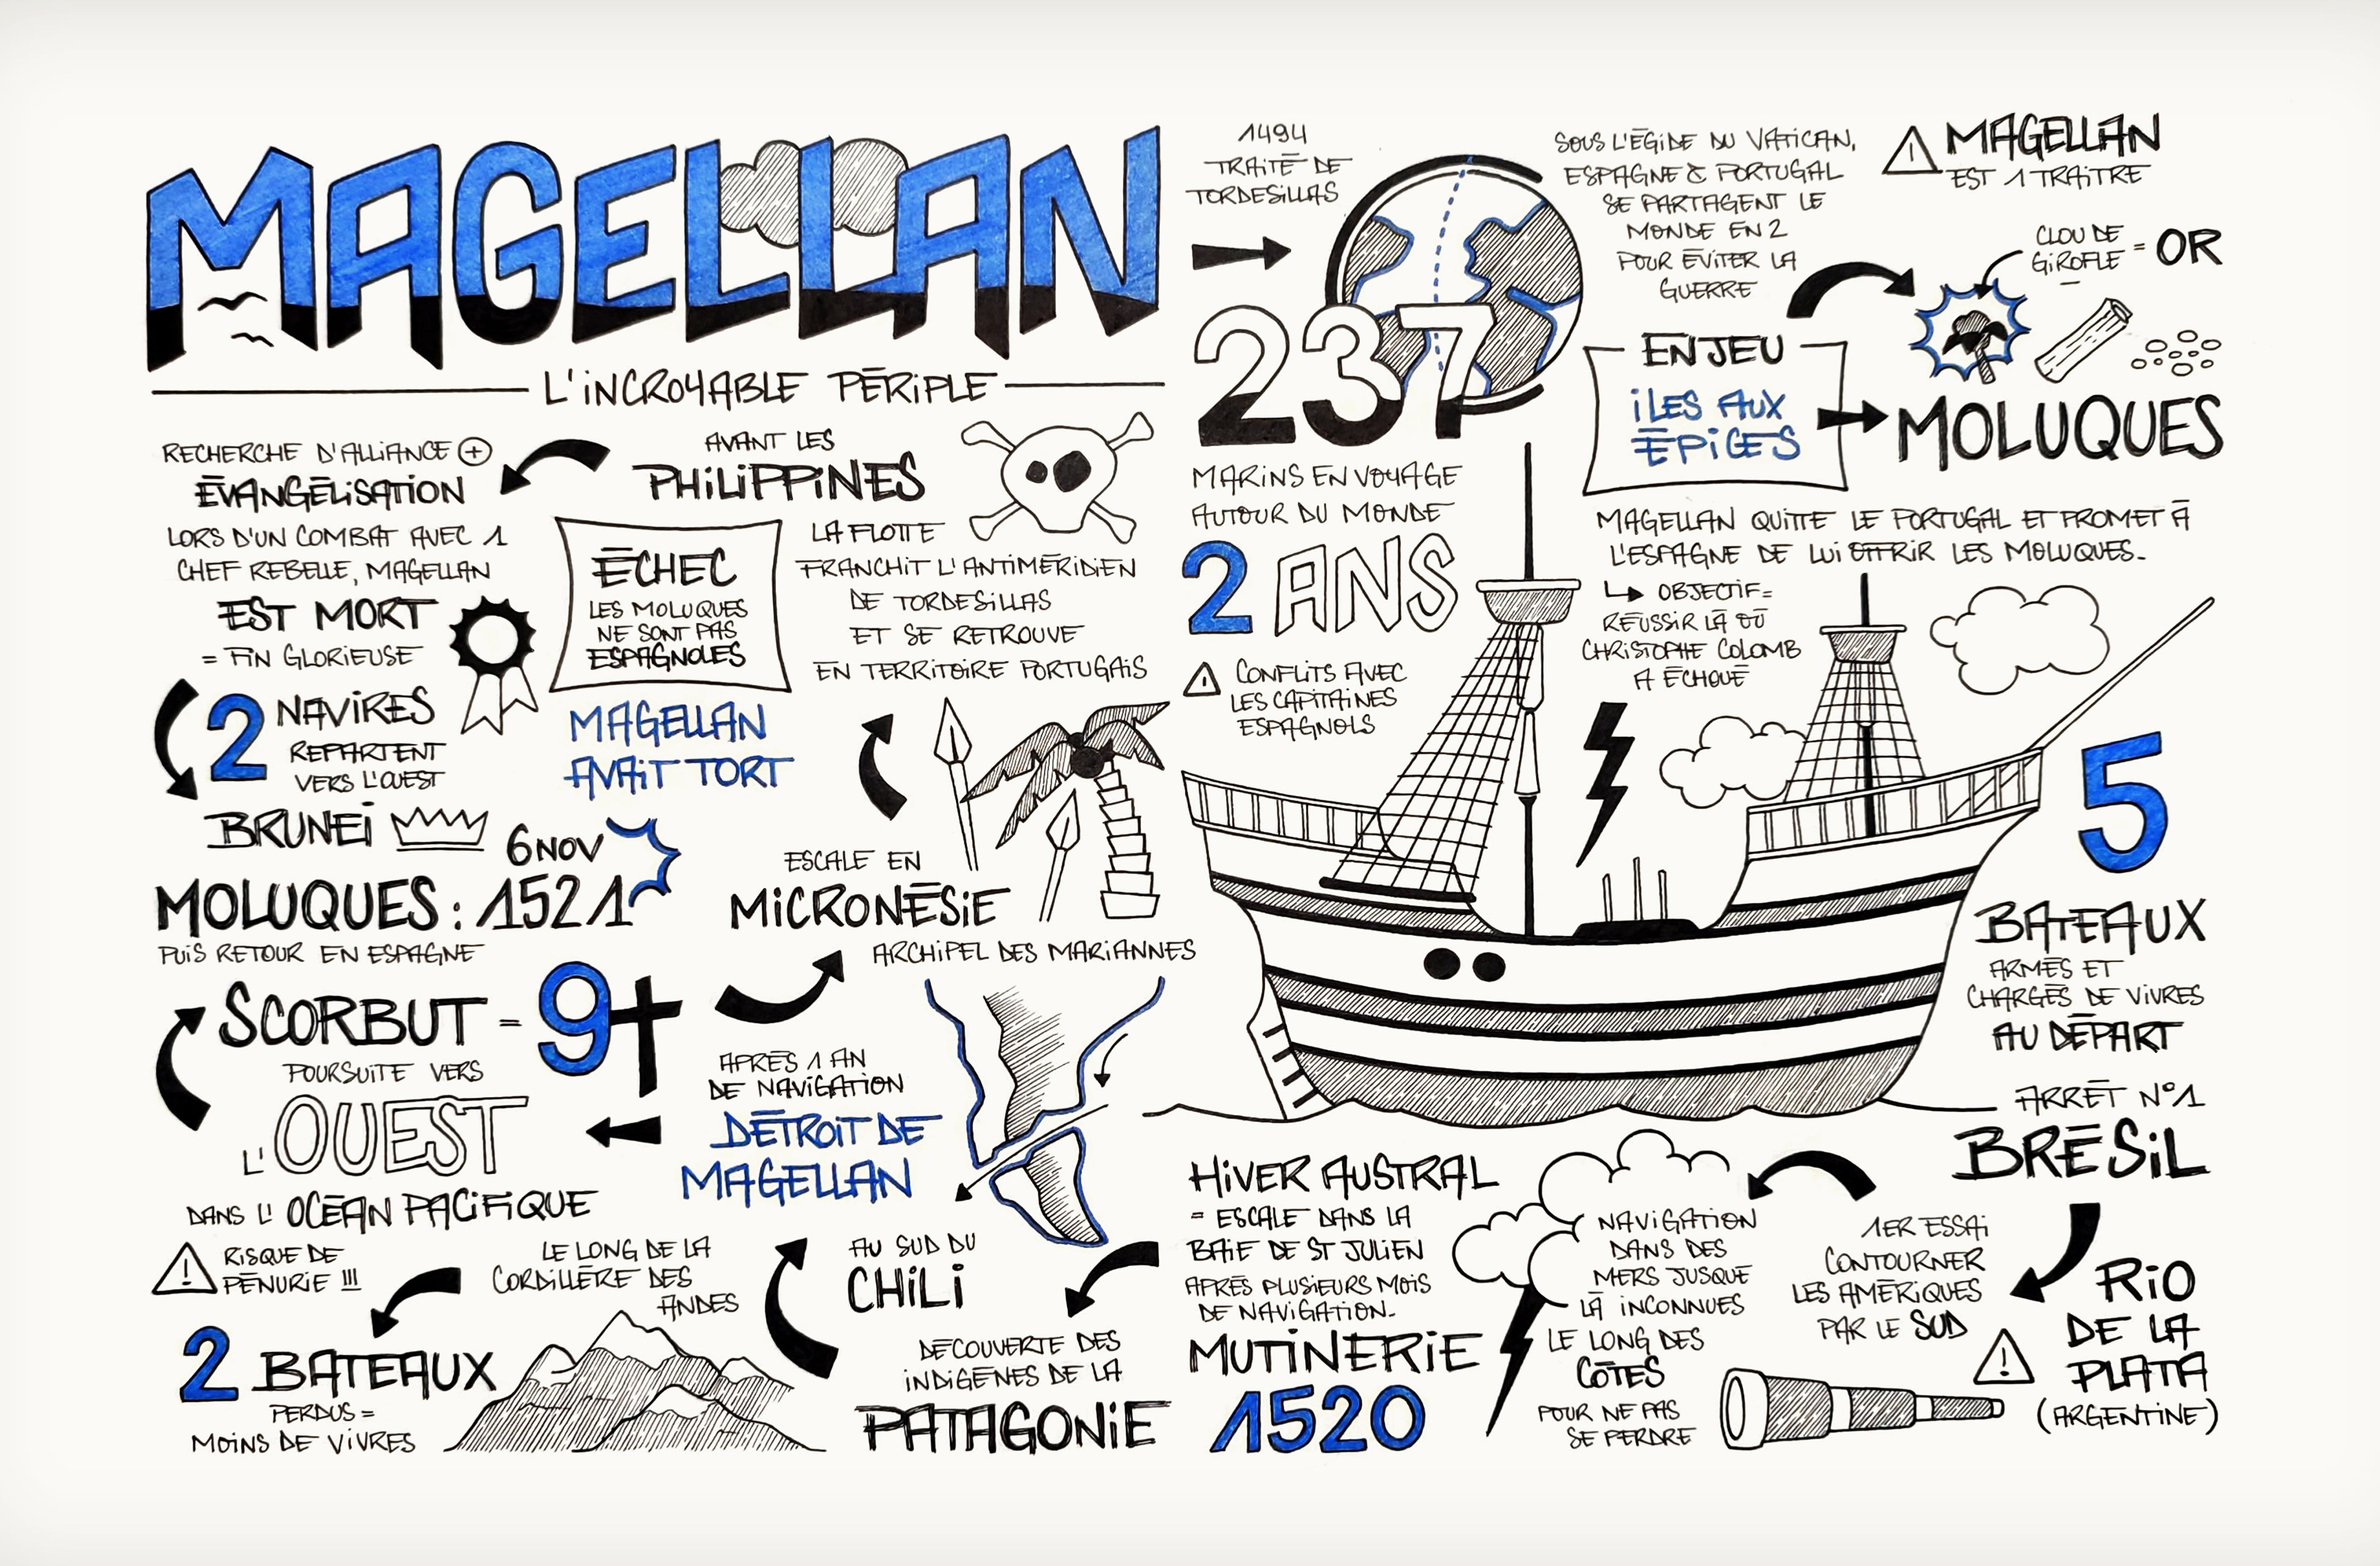 MAGELLAN
L'INCROYABLE PÉRIPLE
1494
TRAITÉ DE
TORDESILLAS
SOUS L'ÉGIDE DU VATICAN,
ESPAGNE & PORTUGAL
SE PARTAGENT LE
MONDE EN 2
POUR ÉVITER LA
GUERRE
MAGELLAN
EST 1 TRAÎTRE
CLOU DE
GIROFLE = OR
ENJEU
ILES AUX
ÉPICES
MOLUQUES
237
MARINS EN VOYAGE
AUTOUR DU MONDE
2 ANS
CONFLITS AVEC
LES CAPITAINES
ESPAGNOLS
MAGELLAN QUITTE LE PORTUGAL ET PROMET À
L'ESPAGNE DE LUI OFFRIR LES MOLUQUES.
OBJECTIF =
RÉUSSIR LÀ OÙ
CHRISTOPHE COLOMB
A ÉCHOUÉ
5
BATEAUX
ARMÉS ET
CHARGÉS DE VIVRES
AU DÉPART
ARRÊT N°1
BRÉSIL
RIO
DE LA
PLATA
(ARGENTINE)
1ER ESSAI
CONTOURNER
LES AMÉRIQUES
PAR LE SUD
NAVIGATION
DANS DES
MERS JUSQUE
LÀ INCONNUES
LE LONG DES
CÔTES
POUR NE PAS
SE PERDRE
HIVER AUSTRAL
= ESCALE DANS LA
BAIE DE ST JULIEN
APRÈS PLUSIEURS MOIS
DE NAVIGATION.
MUTINERIE
1520
DÉCOUVERTE DES
INDIGÈNES DE LA
PATAGONIE
AU SUD DU
CHILI
APRÈS 1 AN
DE NAVIGATION
DÉTROIT DE
MAGELLAN
LE LONG DE LA
CORDILLÈRE DES
ANDES
2 BATEAUX
PERDUS =
MOINS DE VIVRES
POURSUITE VERS
L'OUEST
DANS L'OCÉAN PACIFIQUE
RISQUE DE
PÉNURIE !!!
SCORBUT = 9
ESCALE EN
MICRONÉSIE
ARCHIPEL DES MARIANNES
LA FLOTTE
FRANCHIT L'ANTIMÉRIDIEN
DE TORDESILLAS
ET SE RETROUVE
EN TERRITOIRE PORTUGAIS
AVANT LES
PHILIPPINES
ÉCHEC
LES MOLUQUES
NE SONT PAS
ESPAGNOLES
MAGELLAN
AVAIT TORT
RECHERCHE D'ALLIANCE +
ÉVANGÉLISATION
LORS D'UN COMBAT AVEC 1
CHEF REBELLE, MAGELLAN
EST MORT
= FIN GLORIEUSE
2 NAVIRES
REPARTENT
VERS L'OUEST
BRUNEI
6 NOV
MOLUQUES : 1521
PUIS RETOUR EN ESPAGNE